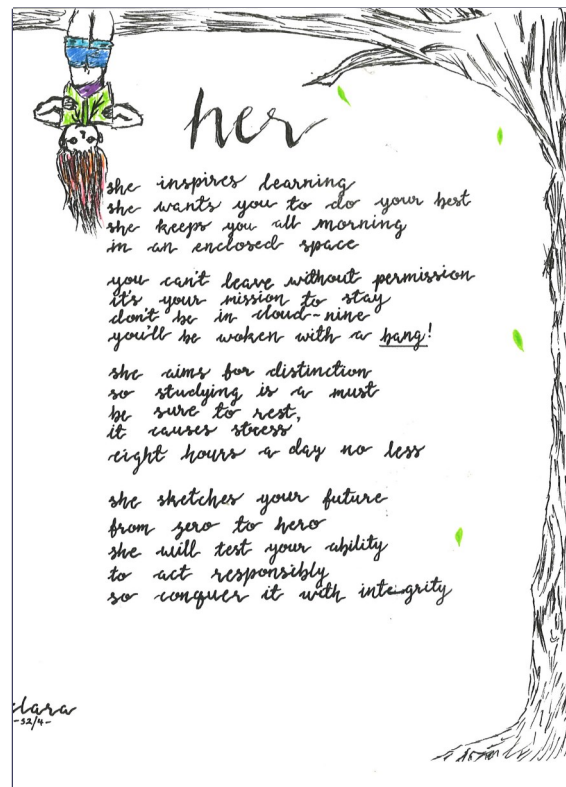 her
she inspires learning
she wants you to do your best
she keeps you all morning
in an enclosed space
you can't leave without permission
it's your mission to stay
don't be in cloud-nine
you'll be woken with a bang!
she aims for distinction
so studying is a must
be sure to rest,
it causes stress
eight hours a day no less
she sketches your future
from zero to hero
she will test your ability
to act responsibly
so conquer it with integrity
clara
-S2/4-